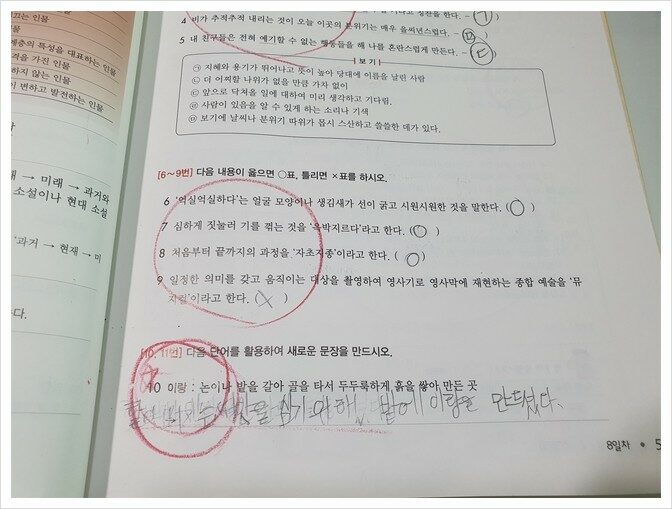 인물
인물
계층의 특성을 대표하는 인물
성격을 가진 인물
하지 않는 인물
이 변하고 발전하는 인물
재 → 미래 → 과거와
소설이나 현대 소설
'과거 → 현재 → 미
다.
4 비가 추적추적 내리는 것이 오늘 이곳의 분위기는 매우 을씨년스럽다. - (ㄱ)
5 내 친구들은 전혀 예기할 수 없는 행동들을 해 나를 혼란스럽게 만든다. - (ㄷ)
보기
㉠ 지혜와 용기가 뛰어나고 뜻이 높아 당대에 이름을 날린 사람
㉡ 더 어찌할 나위가 없을 만큼 가차 없이
㉢ 앞으로 닥쳐올 일에 대하여 미리 생각하고 기다림.
㉣ 사람이 있음을 알 수 있게 하는 소리나 기색
㉤ 보기에 날씨나 분위기 따위가 몹시 스산하고 쓸쓸한 데가 있다.
[6~9번] 다음 내용이 옳으면 ○표, 틀리면 ×표를 하시오.
6 '억실억실하다'는 얼굴 모양이나 생김새가 선이 굵고 시원시원한 것을 말한다. (○)
7 심하게 짓눌러 기를 꺾는 것을 '윽박지르다'라고 한다. (○)
8 처음부터 끝까지의 과정을 '자초지종'이라고 한다. (○)
9 일정한 의미를 갖고 움직이는 대상을 촬영하여 영사기로 영사막에 재현하는 종합 예술을 '뮤
지컬'이라고 한다. (×)
[10, 11번] 다음 단어를 활용하여 새로운 문장을 만드시오.
10 이랑 : 논이나 밭을 갈아 골을 타서 두두룩하게 흙을 쌓아 만든 곳
심기 위해 밭에 이랑을 만드셨다.
8일차 • 5